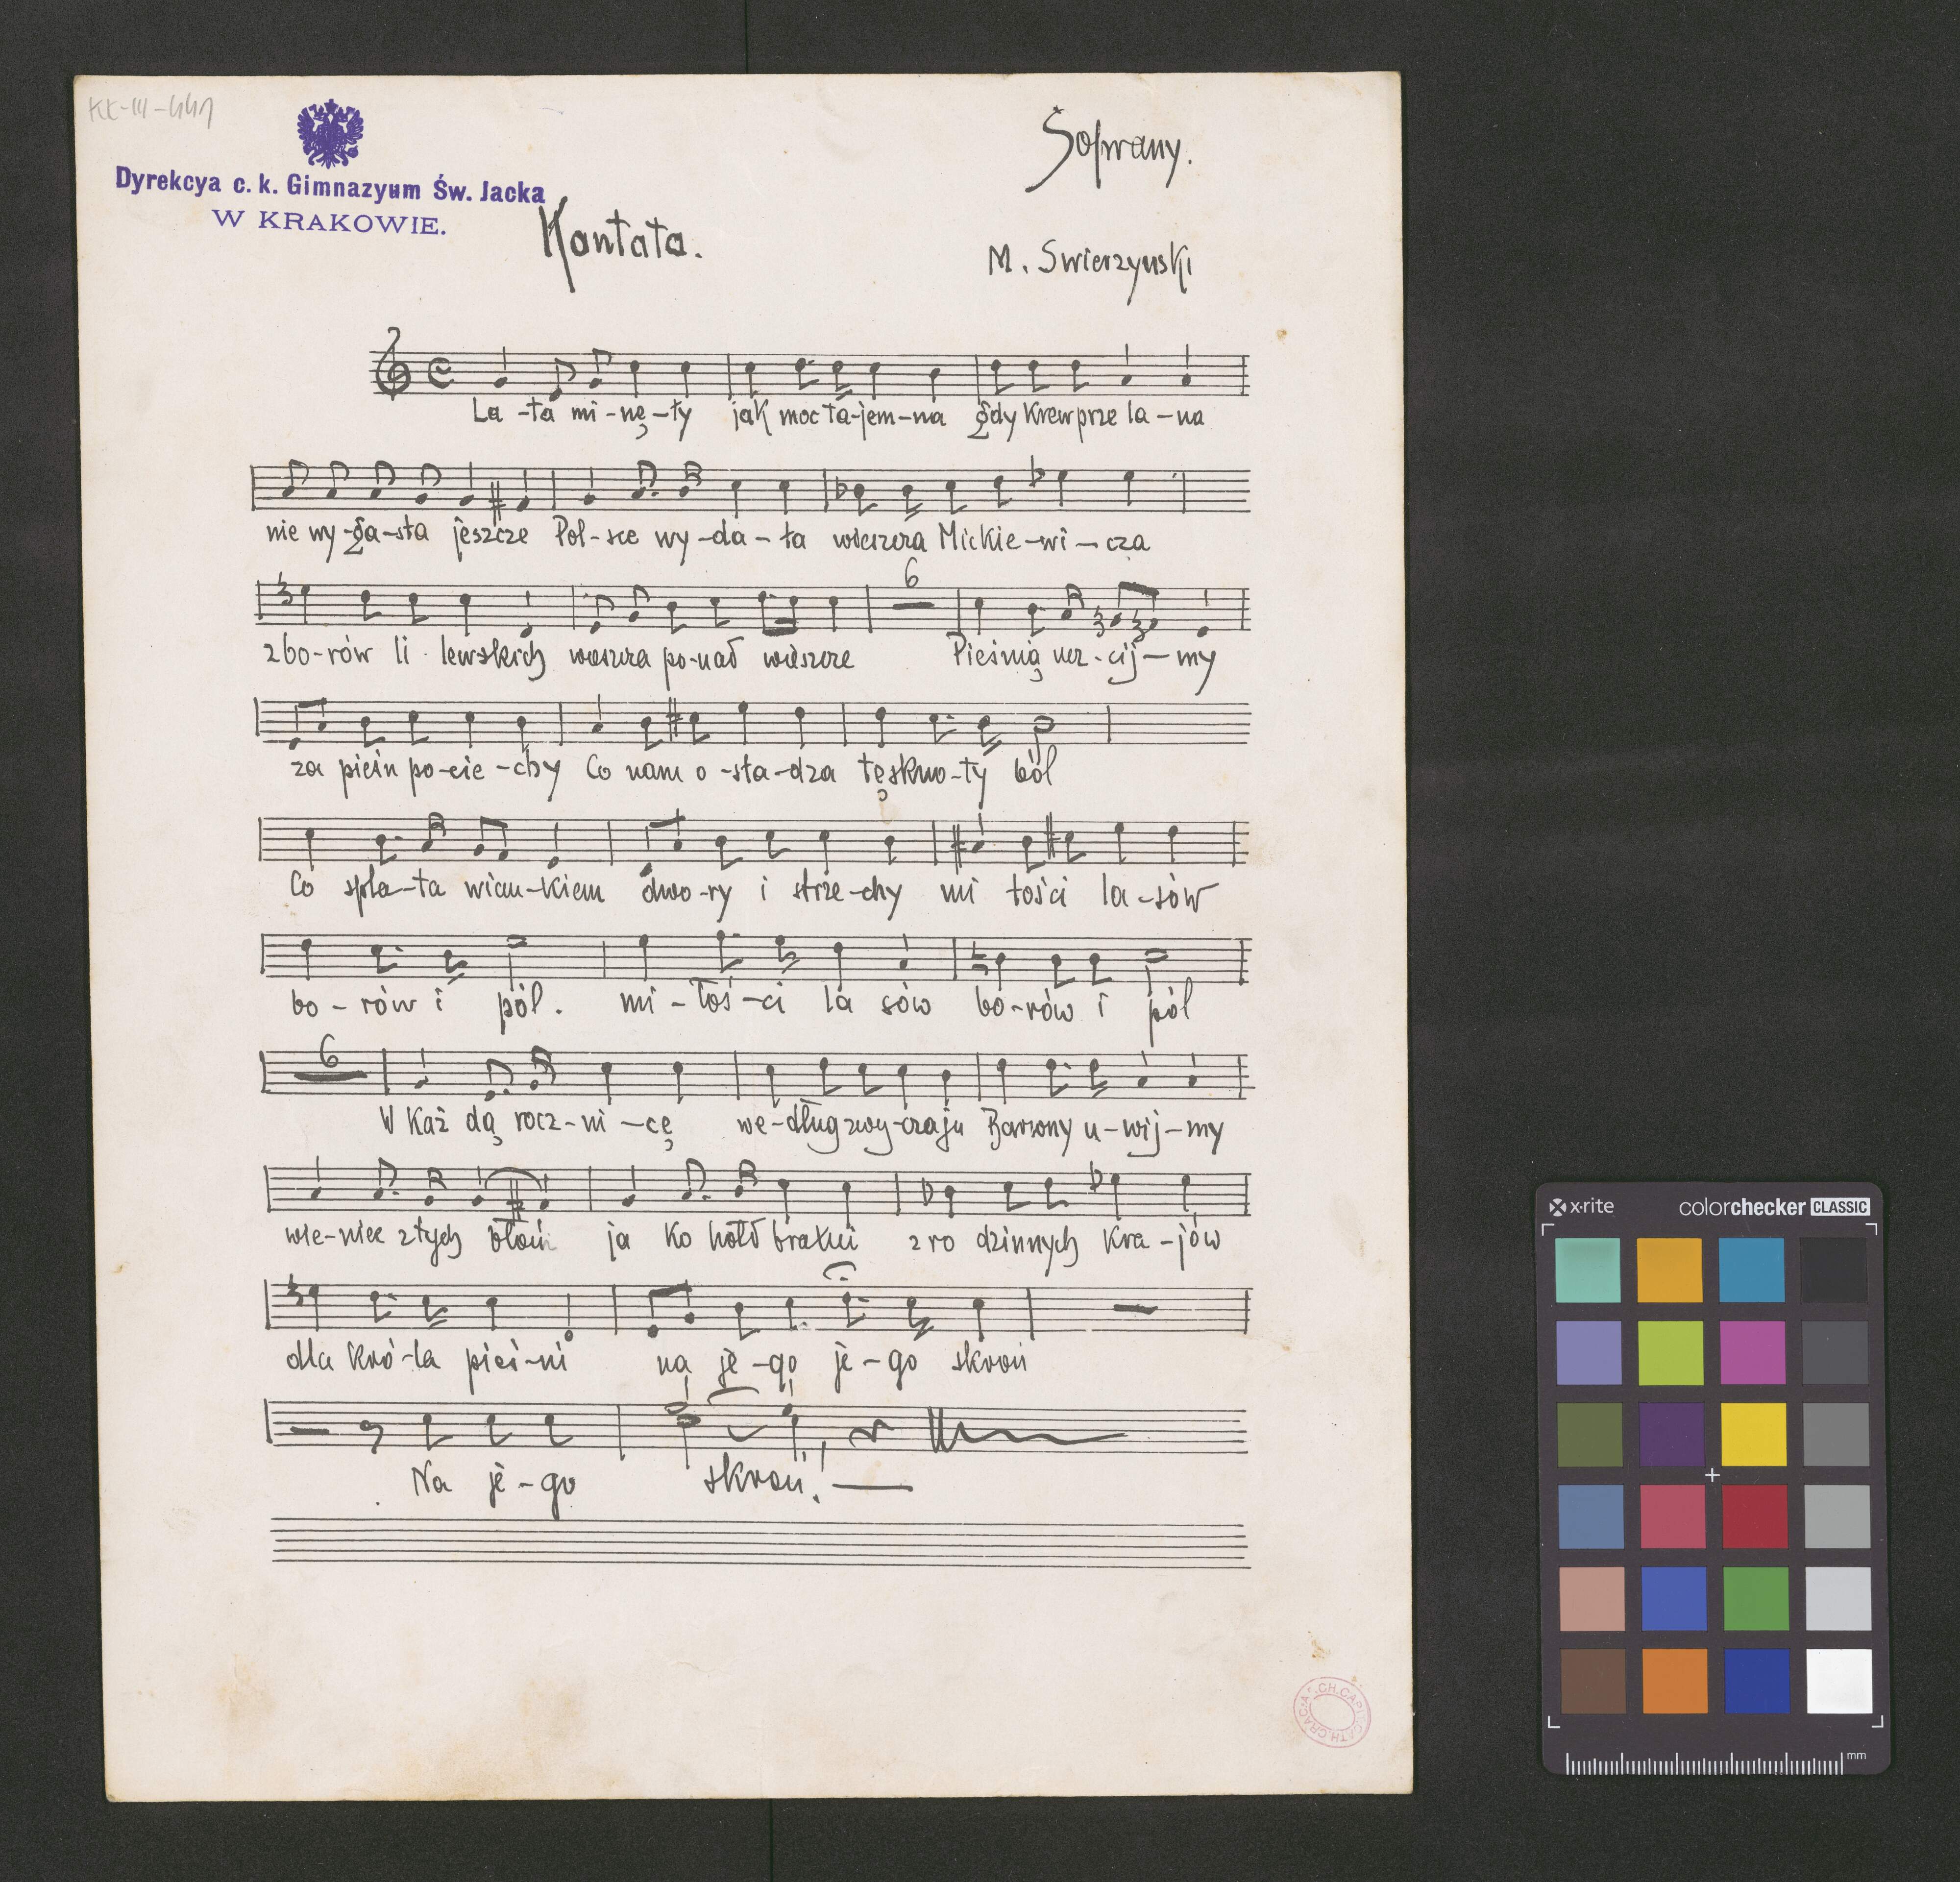 KK-III-441
Soprany.
Dyrekcya c. k. Gimnazyum Św. Jacka
W KRAKOWIE.
Kantata.
M. Swierzyński
La-ta mi-nę-ły jak moc ta-jem-na gdy krew prze la-na
nie wy-ga-sła jeszcze Pol-sce wy-da-ła wieszcza Mickie-wi-cza
6
zbo-rów li lewskich wieszcza po-nad wieszcze Pieśnią ucz-cij-my
za pieśń po-cie-chy Co nam o-sła-dza tęskno-ty ból
Co spla-ta wian-kiem dwo-ry i strze-chy mi łości la-sów
bo-rów i pól. mi-łoś-ci la sów bo-rów i pól
6
W każ dą rocz-ni-cę we-dług zwy-czaju u-wij-my
wie-niec z tych błoń ja ko hołd bratni z ro dzinnych kra-jów
dla kró-la pieś-ni na je-go je-go skroń
Na je-go skroń!
x-rite colorchecker CLASSIC
mm